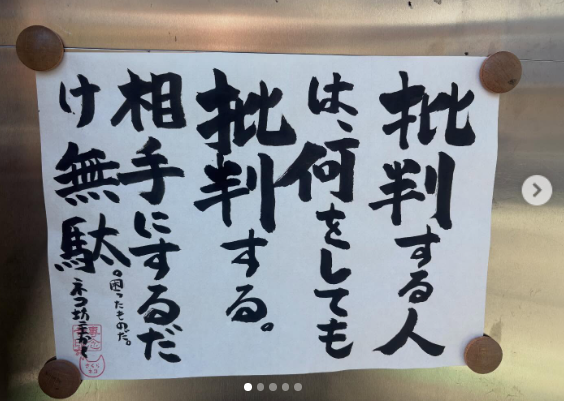 批判する人
は、何をしても
批判する。
相手にするだ
け無駄。
困ったものだ。